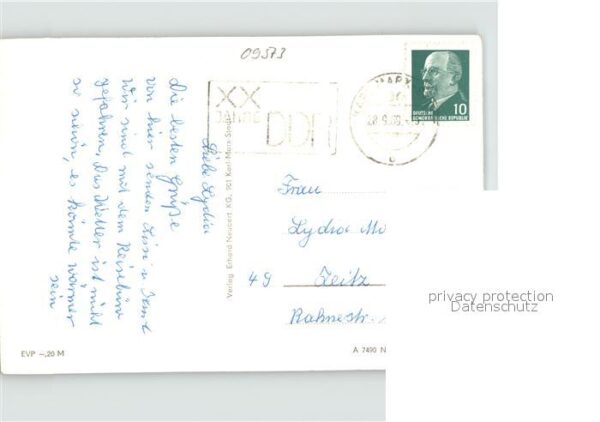 09573
XX
JAHRE
DDR
10
DEUTSCHE
DEMOKRATISCHE REPUBLIK
Liebe Lydia
Die besten Grüße
von hier senden
Wir sind mit dem Reisebüro
gefahren. Das Wetter ist nicht
so schön, es könnte wärmer
sein
Verlag Erhard Neubert KG, 901 Karl-Marx-Stadt
Frau
Lydia Mo
49 Zeitz
Rahnestr.
EVP -,20 M
A 7490 N
privacy protection
Datenschutz